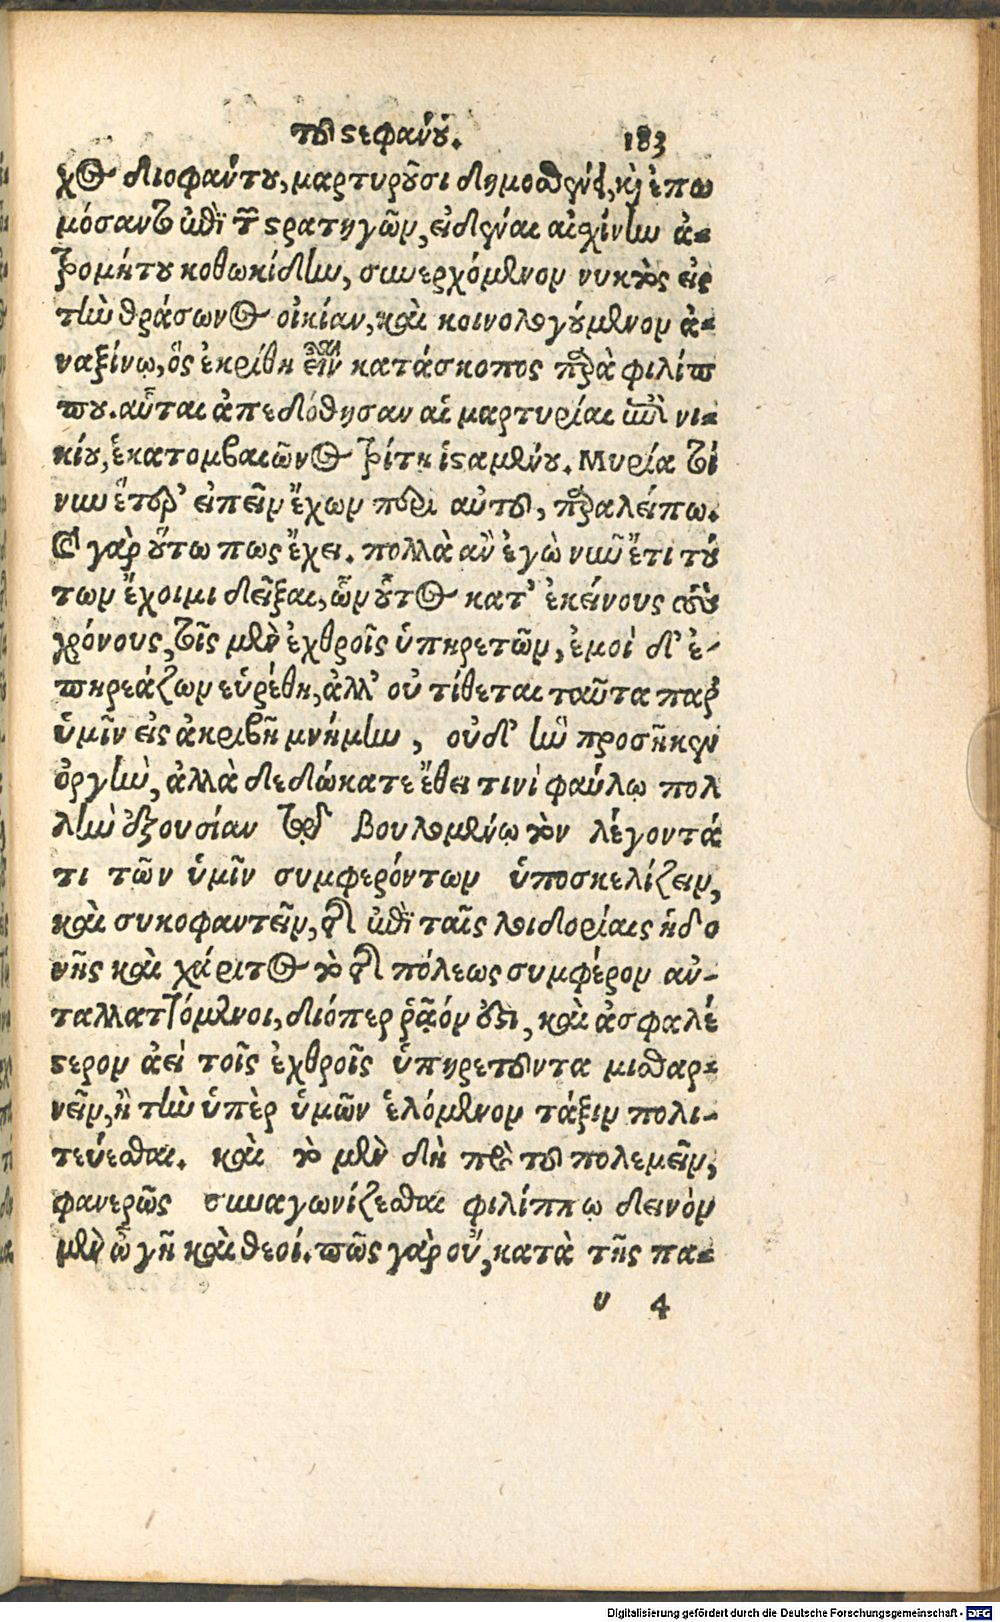 τοῦ στεφάνου. 183
χος διοφάντου, μαρτυροῦσι δημοσθένει, καὶ ἐπω
μόσαντο ἐπὶ τῶν στρατηγῶν, εἰδέναι αἰσχίνην ἀ-
τρομήτου κοθωκίδην, συνερχόμενον νυκτὸς εἰς
τὴν θράσωνος οἰκίαν, καὶ κοινολογούμενον ἀ-
ναξίνῳ, ὃς ἐκρίθη εἶναι κατάσκοπος παρὰ φιλίπ
που. αὗται ἀπεδόθησαν αἱ μαρτυρίαι ἐπὶ νι-
κίου, ἑκατομβαιῶνος τρίτῃ ἱσταμένου. Μυρία τοί
νυν ἕτερ' εἰπεῖν ἔχων περὶ αὐτοῦ, παραλείπω.
Καὶ γὰρ οὕτω πως ἔχει. πολλὰ ἂν ἐγὼ νῦν ἔτι τού
των ἔχοιμι δεῖξαι, ὧν οὗτος κατ' ἐκείνους τοὺς
χρόνους, τοῖς μὲν ἐχθροῖς ὑπηρετῶν, ἐμοὶ δ' ἐ-
πηρεάζων εὑρέθη, ἀλλ' οὐ τίθεται ταῦτα παρ'
ὑμῖν εἰς ἀκριβῆ μνήμην, οὐδ' ἣν προσῆκεν
ὀργὴν, ἀλλὰ δεδώκατε ἔθει τινὶ φαύλῳ πολ
λὴν ἐξουσίαν τῷ βουλομένῳ τὸν λέγοντά
τι τῶν ὑμῖν συμφερόντων ὑποσκελίζειν,
καὶ συκοφαντεῖν, τῆς ἐπὶ ταῖς λοιδορίαις ἡδο
νῆς καὶ χάριτος τὸ τῆς πόλεως συμφέρον ἀν-
ταλλαττόμενοι, διόπερ ῥᾷόν ἐστι, καὶ ἀσφαλέ
στερον ἀεὶ τοῖς ἐχθροῖς ὑπηρετοῦντα μισθαρ-
νεῖν, ἢ τὴν ὑπὲρ ὑμῶν ἑλόμενον τάξιν πολι-
τεύεσθαι. καὶ τὸ μὲν δὴ πρὸ τοῦ πολεμεῖν,
φανερῶς συναγωνίζεσθαι φιλίππῳ δεινὸν
μὲν ὦ γῆ καὶ θεοί. πῶς γὰρ οὔ, κατὰ τῆς πα-
υ 4
Digitalisierung gefördert durch die Deutsche Forschungsgemeinschaft - DFG